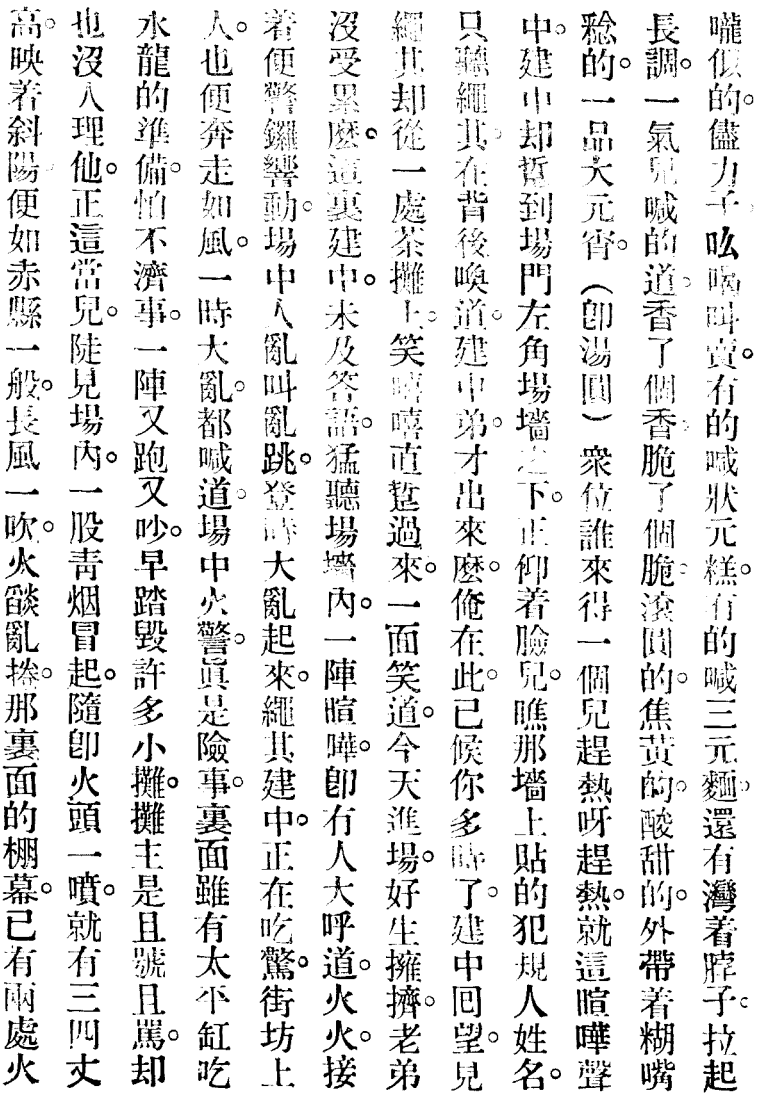 嚨似的。儘力子。吆喝叫賣。有的喊狀元糕。有的喊三元麵。還有灣着脖子。拉起
長調。一氣兒喊的道。香了個香。脆了個脆。滾圓的。焦黃的。酸甜的。外帶着糊嘴
稔的。一品大元宵。（卽湯圓）衆位誰來得一個兒趕熱呀趕熱。就這暄嘩聲
中。建中却踅到場門左角場墻之下。正仰着臉兒。瞧那墻上貼的犯規人姓名。
只聽繩其。在背後喚道。建中弟。才出來麼。俺在此。已候你多時了。建中回望。見
繩其却從一處茶攤上。笑嘻嘻直踅過來。一面笑道。今天進場。好生擁擠。老弟
沒受累麼。這裏建中。未及答語。猛聽場墻內。一陣暄嘩。卽有人大呼道。火火。接
着便警鑼響動。場中人亂叫亂跳。登時大亂起來。繩其建中。正在吃驚。街坊上
人。也便奔走如風。一時大亂。都喊道。場中火警。眞是險事。裏面雖有太平缸吃
水龍的準備。怕不濟事。一陣又跑又吵。早踏毀許多小攤。攤主是且號且罵。却
也沒人理他。正這當兒。陡見場內。一股靑烟冒起。隨卽火頭一噴。就有三四丈
高。映着斜陽。便如赤縣一般。長風一吹。火燄亂捲。那裏面的棚幕。已有兩處火